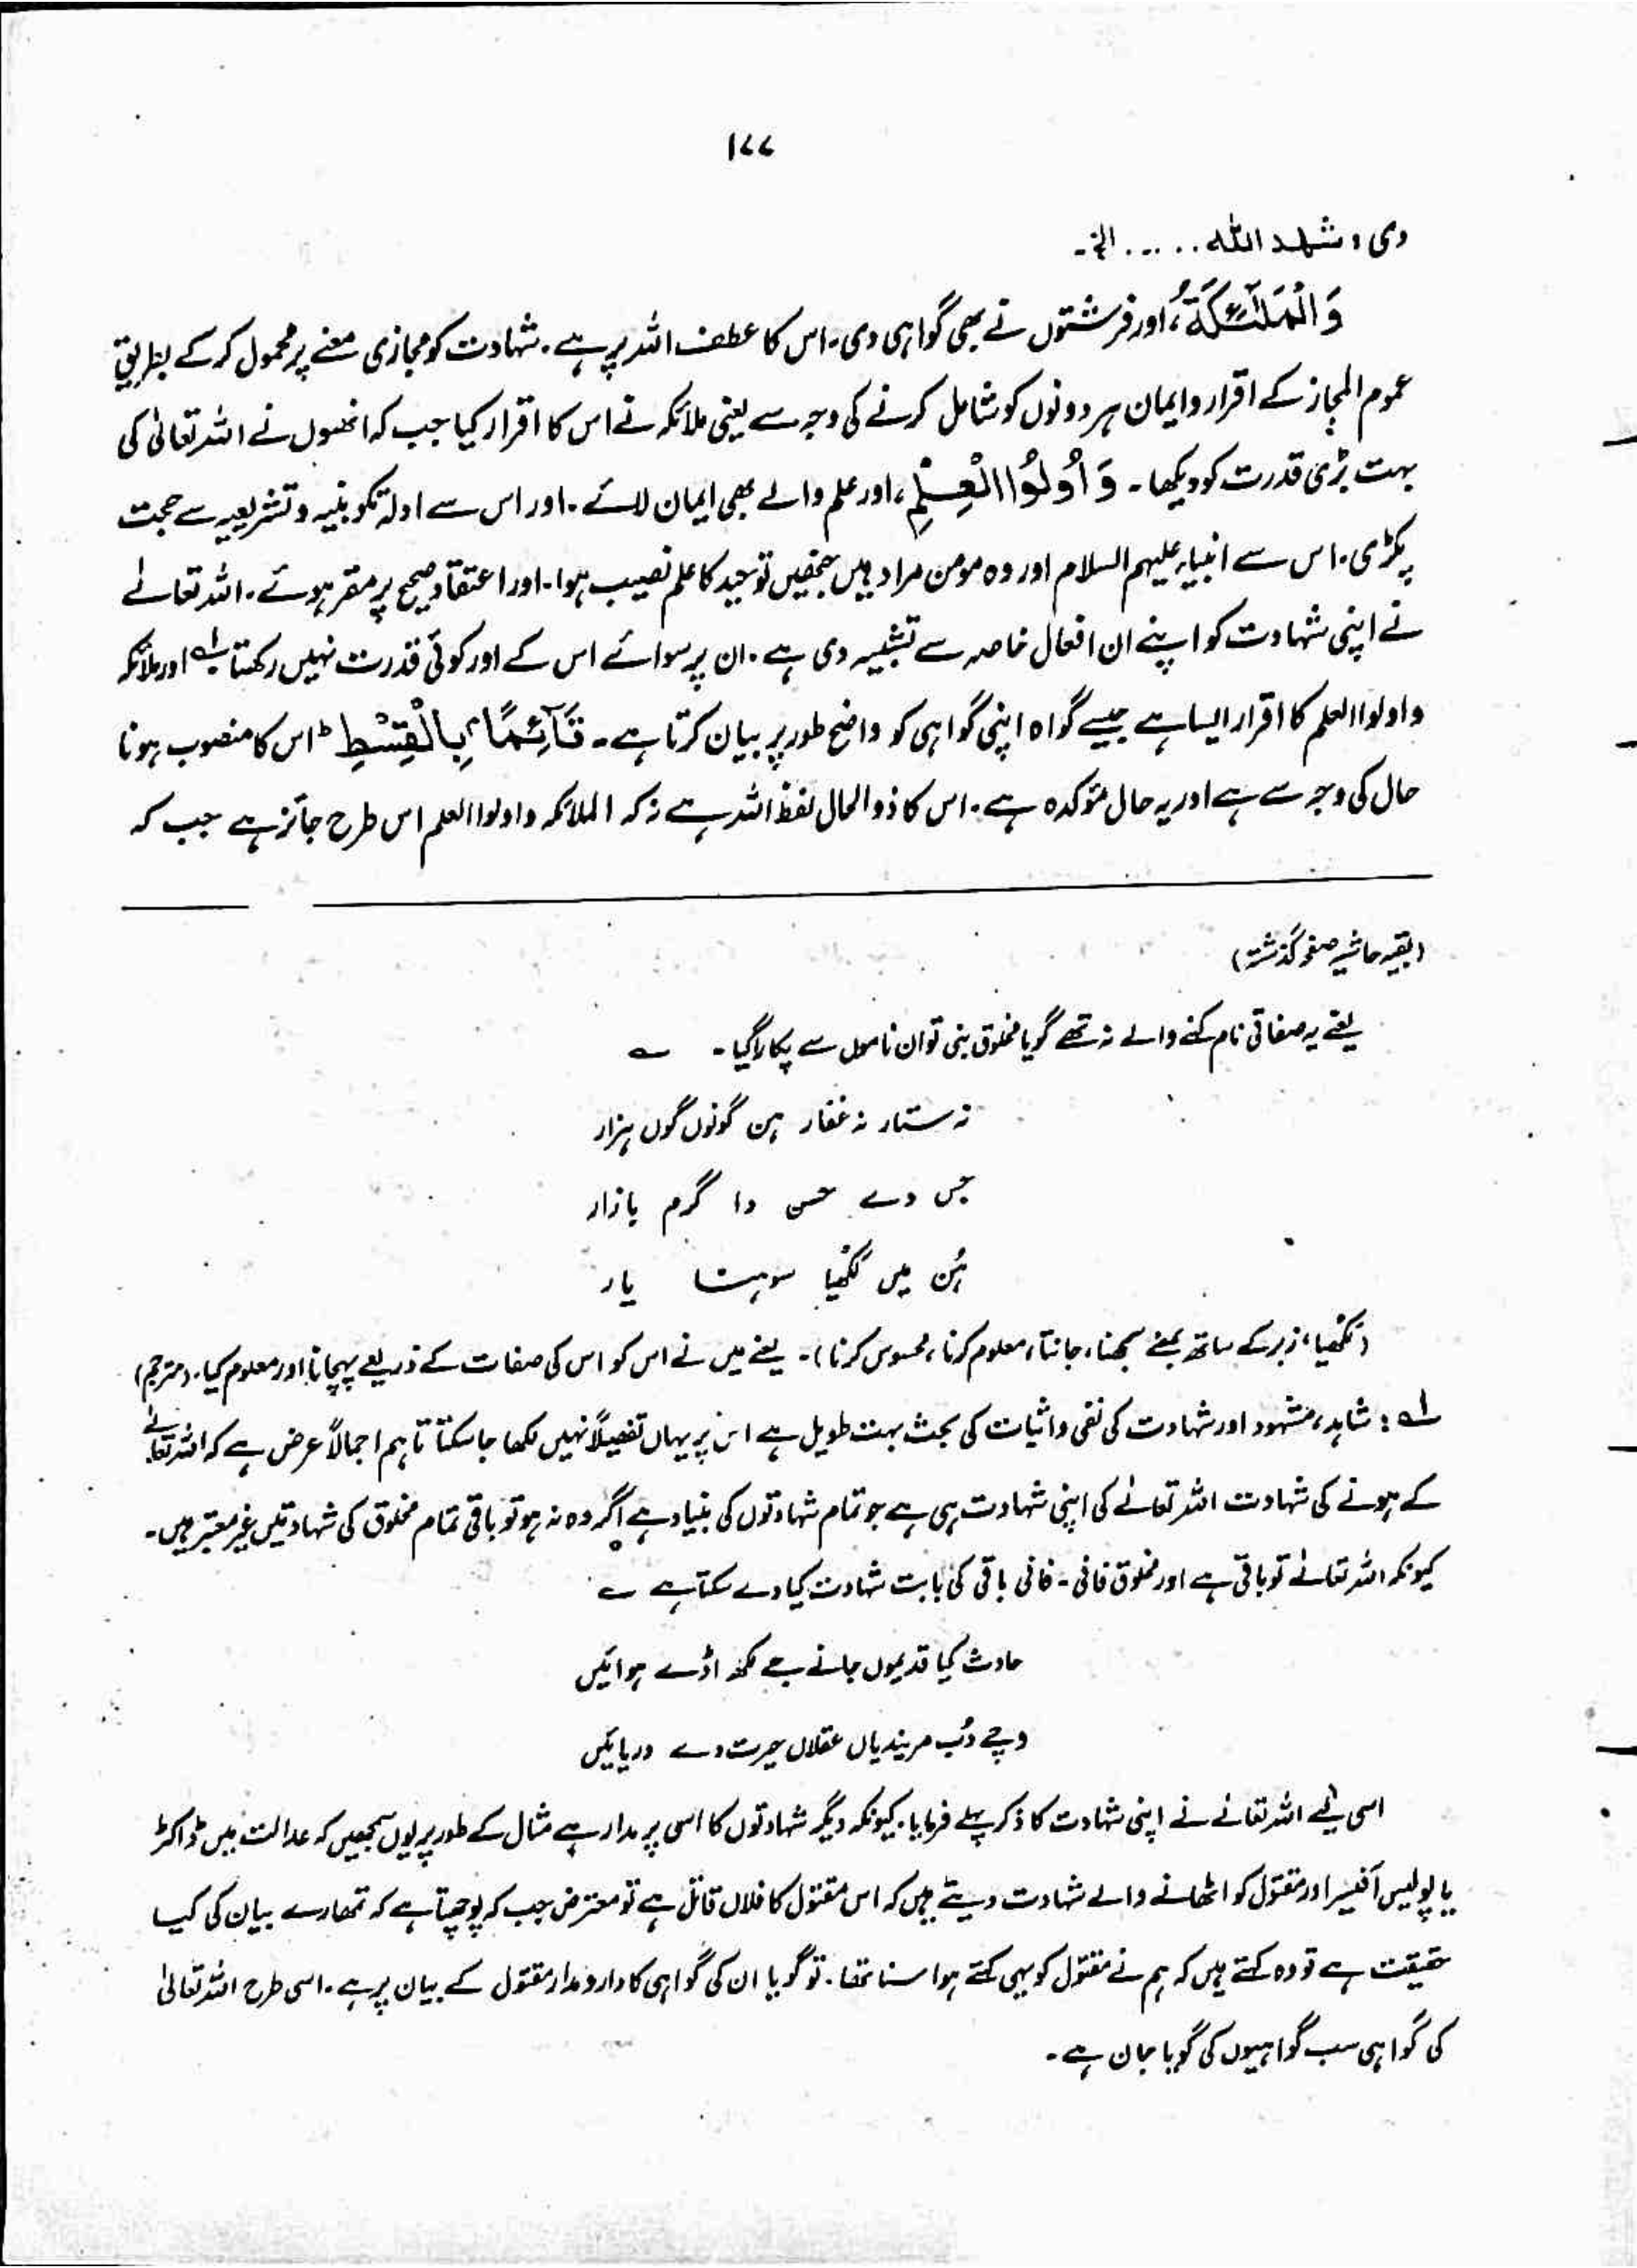 ۱۷۷
دی، شہد اللہ ..... الخ۔
وَالْمَلٰٓئِكَةُ، اور فرشتوں نے بھی گواہی دی۔ اس کا عطف اللہ پر ہے۔ شہادت کو مجازی معنے پر محمول کر کے بطریق
عموم المجاز کے اقرار و ایمان ہر دونوں کو شامل کرنے کی وجہ سے یعنی ملائکہ نے اس کا اقرار کیا جب کہ انھوں نے اللہ تعالیٰ کی
بہت بڑی قدرت کو دیکھا۔ وَاُولُوا الْعِلْمِ، اور علم والے بھی ایمان لائے۔ اور اس سے ادلہ تکوینیہ و تشریعیہ سے حجت
پکڑی۔ اس سے انبیاء علیہم السلام اور وہ مومن مراد ہیں جنھیں توحید کا علم نصیب ہوا۔ اور اعتقاد صحیح پر مقر ہوئے۔ اللہ تعالےٰ
نے اپنی شہادت کو اپنے ان افعال خاصہ سے تشبیہ دی ہے۔ ان پر سوائے اس کے اور کوئی قدرت نہیں رکھتا ؎۱ اور ملائکہ
و اولوا العلم کا اقرار ایسا ہے جیسے گواہ اپنی گواہی کو واضح طور پر بیان کرتا ہے۔ قَآئِمًا بِالْقِسْطِ ؕ اس کا منصوب ہونا
حال کی وجہ سے ہے اور یہ حال مؤکدہ ہے۔ اس کا ذو الحال لفظ اللہ ہے نہ کہ الملائکہ و اولوا العلم اس طرح جائز ہے جب کہ
(بقیہ حاشیہ صفحہ گذشتہ)
یعنے یہ صفاتی نام کہنے والے نہ تھے گویا مخلوق بنی تو ان ناموں سے پکارا گیا۔ ؎
نہ ستار نہ غفار ہن گونوں گوں ہزار
جس دے حسن دا گرم بازار
ہُن میں لَکھیا سوہنا یار
(لَکھیا، زبر کے ساتھ بمعنے سمجھنا، جاننا، معلوم کرنا، محسوس کرنا)۔ یعنے میں نے اس کو اس کی صفات کے ذریعے پہچانا اور معلوم کیا۔ (مترجم)
؎۱: شاہد، مشہود اور شہادت کی نفی و اثبات کی بحث بہت طویل ہے اس پر یہاں تفصیلاً نہیں لکھا جا سکتا تاہم اجمالاً عرض ہے کہ اللہ تعالےٰ
کے ہونے کی شہادت اللہ تعالےٰ کی اپنی شہادت ہی ہے جو تمام شہادتوں کی بنیاد ہے اگر وہ نہ ہو تو باقی تمام مخلوق کی شہادتیں غیر معتبر ہیں۔
کیونکہ اللہ تعالےٰ تو باقی ہے اور مخلوق فانی۔ فانی باقی کی بابت شہادت کیا دے سکتا ہے ؎
حادث کیا قدیموں جانے جے لکھ اڈے ہوائیں
وچے ڈُب مریندیاں عقلاں حیرت دے دریائیں
اسی لیے اللہ تعالےٰ نے اپنی شہادت کا ذکر پہلے فرمایا۔ کیونکہ دیگر شہادتوں کا اسی پر مدار ہے مثال کے طور پر یوں سمجھیں کہ عدالت میں ڈاکٹر
یا پولیس آفیسر اور مقتول کو اٹھانے والے شہادت دیتے ہیں کہ اس مقتول کا فلاں قاتل ہے تو معترض جب کہ پوچھتا ہے کہ تمھارے بیان کی کیا
حقیقت ہے تو وہ کہتے ہیں کہ ہم نے مقتول کو یہی کہتے ہوا سنا تھا۔ تو گویا ان کی گواہی کا دارو مدار مقتول کے بیان پر ہے۔ اسی طرح اللہ تعالیٰ
کی گواہی سب گواہیوں کی گویا جان ہے۔